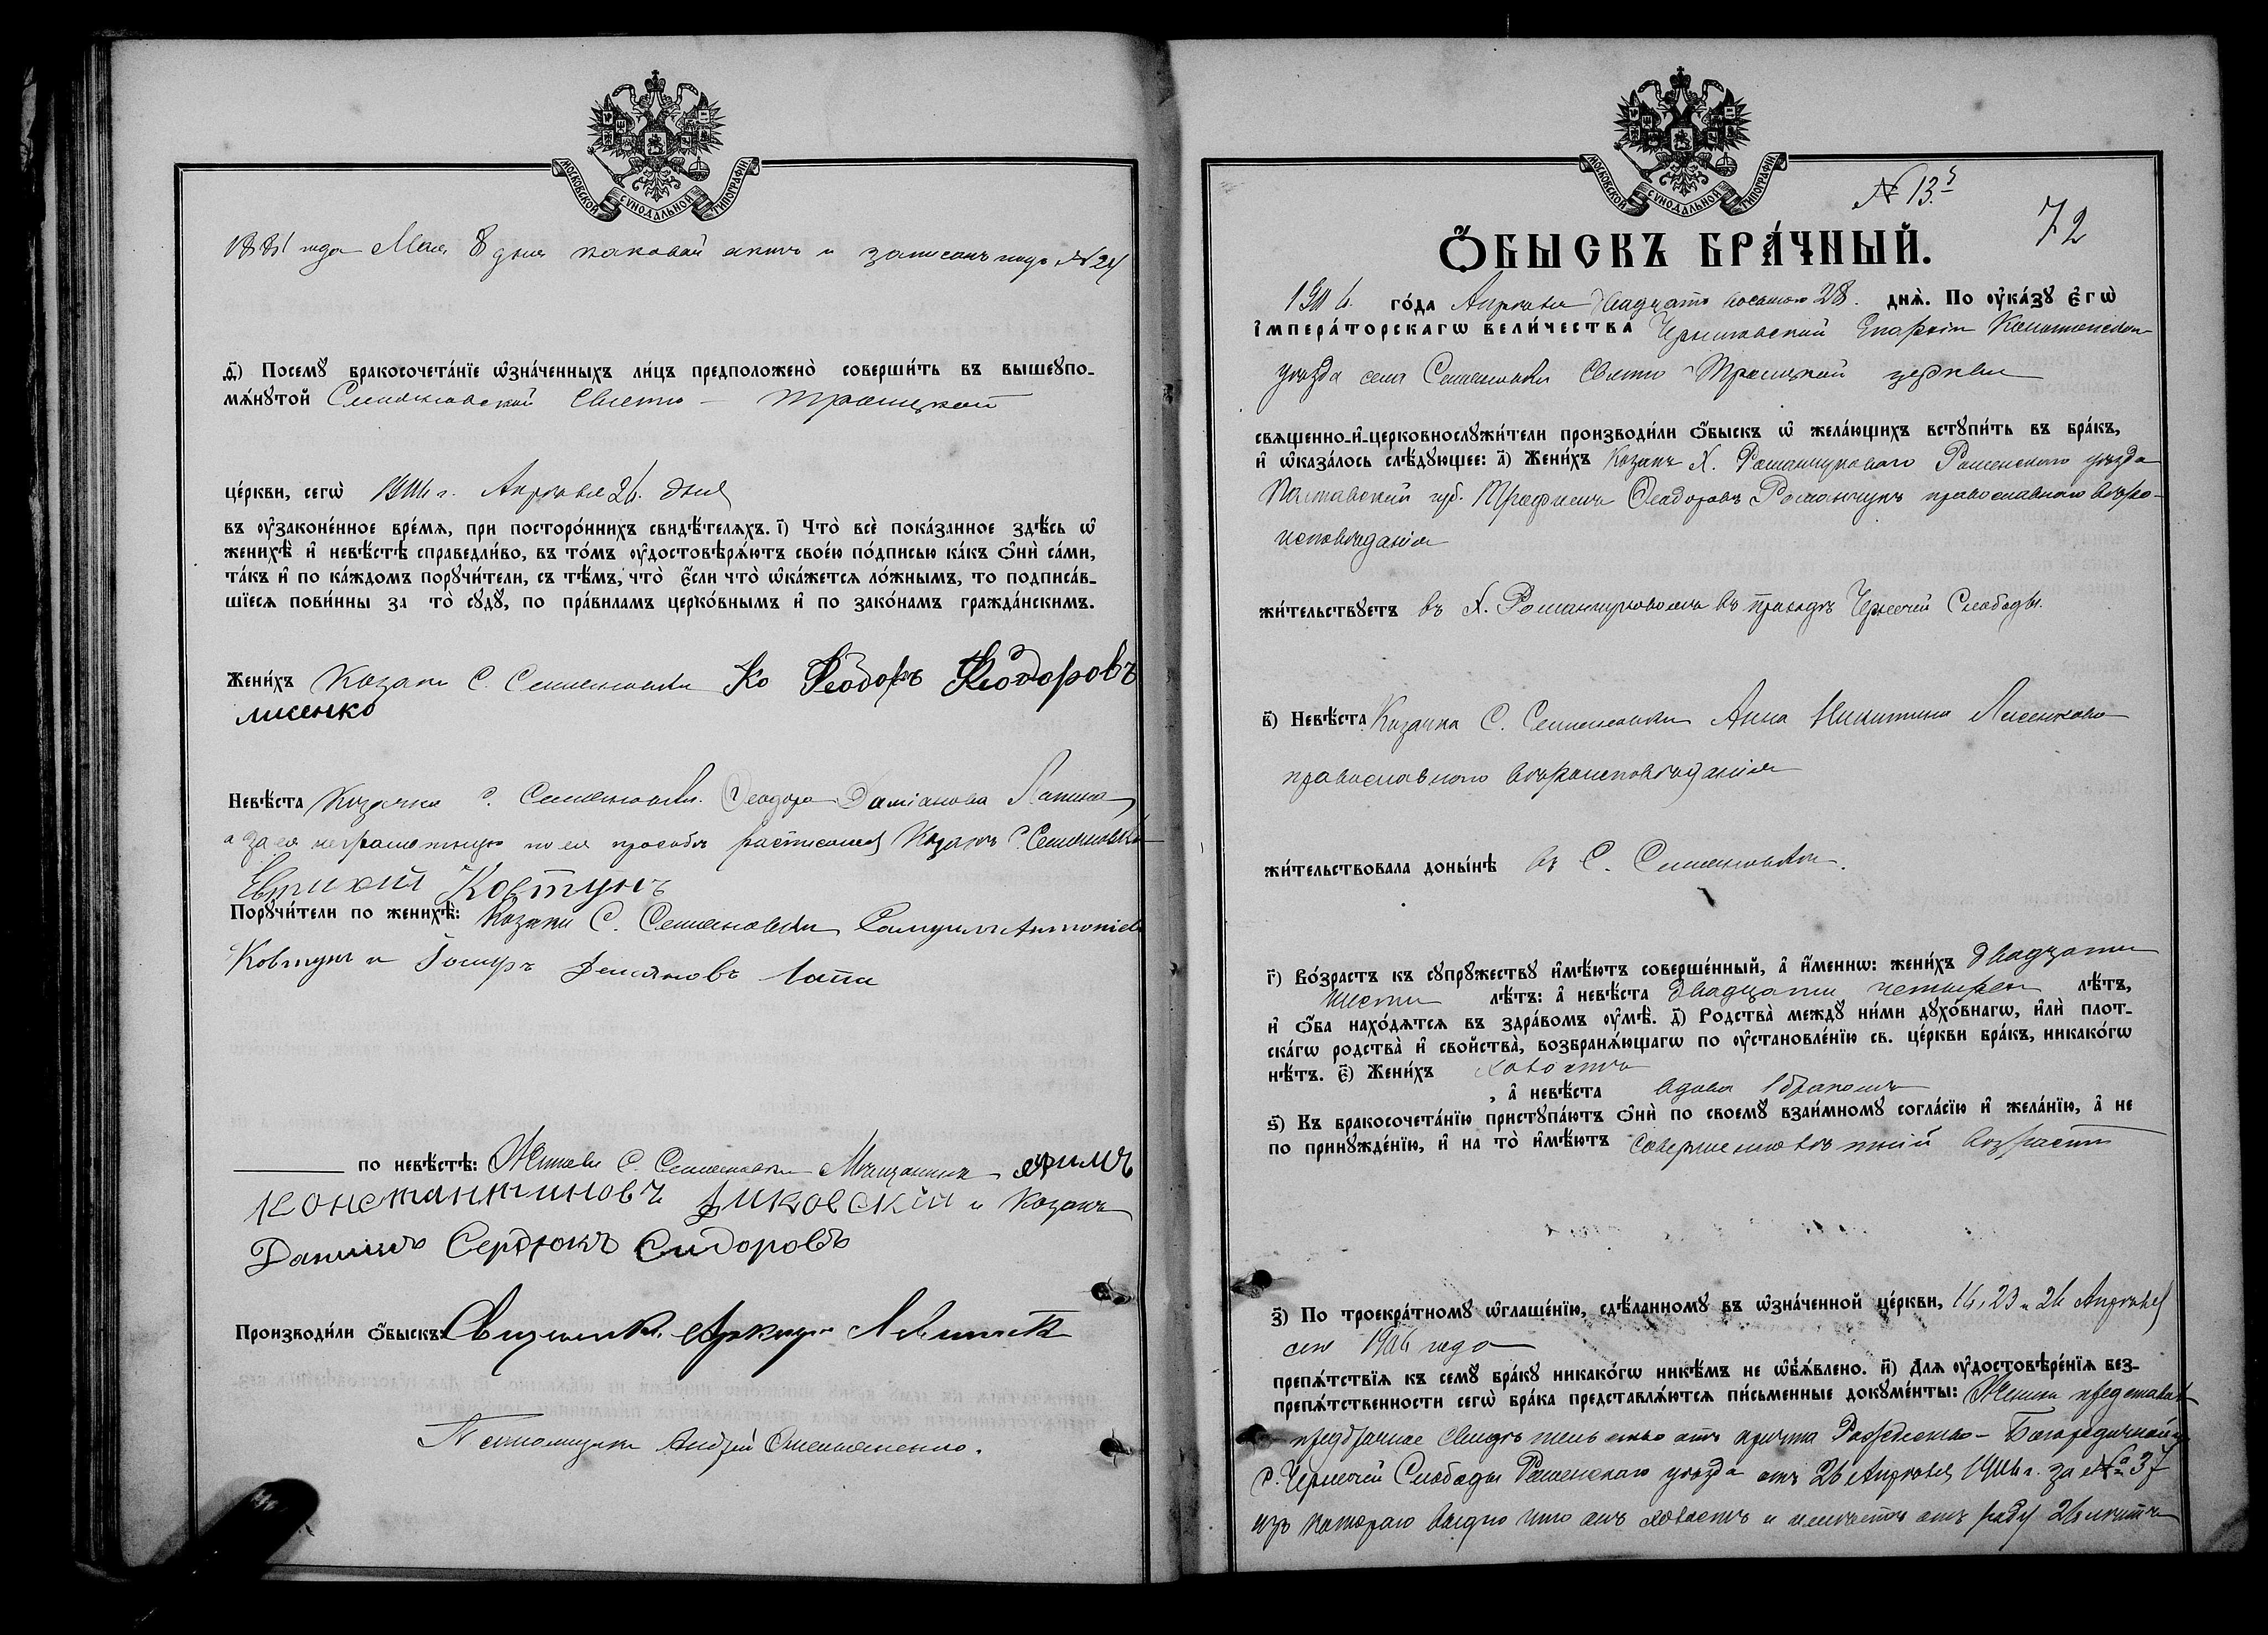 МОСКОВСКОЙ СѴНОДАЛЬНОЙ ТИПОГРАФІИ
1881 года Мая 8 дня каковой актъ и записанъ подъ №24
д҃) Посемꙋ̀ бракосочета́нїе ѡ҆зна́ченныхъ ли́цъ предположено̀ соверши́ть въ вышеꙋпо-
мѧ́нꙋтой Семеновской Свято - Троицкой
це́ркви, сегѡ̀ 1906 г. Апрѣля 26. дня
въ ᲂу҆законе́нное вре́мѧ, при посторо́ннихъ свидѣ́телѧхъ. і҃) Что̀ всѐ пока́занное здѣ́сь ѡ҆
женихѣ̀ и҆ невѣ́стѣ справедли́во, въ то́мъ ᲂу҆достовѣрѧ́ютъ свое́ю по́дписью ка́къ ѻ҆нѝ са́ми,
та́къ и҆ по ка́ждомъ порꙋчи́тели, съ тѣ́мъ, что̀ є҆́сли что̀ ѡ҆ка́жетсѧ ло́жнымъ, то подписа́в-
шїесѧ пови́нны за то̀ сꙋдꙋ̀, по пра́виламъ церко́внымъ и҆ по зако́намъ гражда́нскимъ.
Жени́хъ Козакъ С. Семеновки Ко Ѳеодоръ Ѳеодоровъ
лисенко
Невѣ́ста Козачка С. Семеновки. Ѳеодора Даміанова Лапина
а за ея неграмотную по ея просьбѣ росписался Козакъ С. Семеновки
Евтихій Ковтунъ
Порꙋчи́тели по женихѣ̀: Козаки С. Семеновки Самуилъ Антоніевъ
Ковтунъ и Демяновъ Лапа
по невѣ́стѣ: С. Семеновки Мѣщанинъ Ефимъ
Константиновъ Диковскій и Козакъ
Даниилъ Сердюкъ Сидоровъ
Производи́ли ѻ҆́быскъ: Священникъ
Псаломщикъ Андрей
МОСКОВСКОЙ СѴНОДАЛЬНОЙ ТИПОГРАФІИ
№ 13.
72
Ѻ҆́БЫСКЪ БРА́ЧНЫЙ.
1906. го́да Апрѣля двадцать восьмого 28. днѧ̀. По ᲂу҆ка́зꙋ є҆гѡ̀
і҆мпера́торскагѡ вели́чества Черниговской Епархіи Конотопскаго
уѣзда села Семеновки Свято Троицкой церкви
свѧщенно-и҆-церковнослꙋжи́тели производи́ли ѻ҆́быскъ ѡ҆ жела́ющихъ встꙋпи́ть въ бра́къ,
и҆ ѡ҆каза́лось слѣ́дꙋющее: а҃) Жени́хъ Козакъ Х. Романчуковаго Роменскаго уѣзда
Полтавской губ. Трофимъ Ѳеодоровъ Романчукъ православнаго вѣро-
исповѣданія
жи́тельствꙋетъ въ Х. Романчуковомъ въ приходѣ Чернечей Слободы.
в҃) Невѣ́ста Козачка С. Семеновки Анна Никитина Лисенкова
православнаго вѣроисповѣданія
жи́тельствовала доны́нѣ въ С. Семеновки.
г҃) Во́зрастъ къ сꙋпрꙋ́жествꙋ и҆мѣ́ютъ соверше́нный, а҆ и҆́меннѡ: жени́хъ двадцати
шести лѣ́тъ: а҆ невѣ́ста двадцати четырехъ лѣ́тъ,
и҆ ѻ҆́ба нахо́дѧтсѧ въ здра́вомъ ᲂу҆мѣ̀. д҃) Родства̀ междꙋ̀ ни́ми дꙋхо́внагѡ, и҆лѝ плот-
ска́гѡ родства̀ и҆ свойства̀, возбранѧ́ющагѡ по ᲂу҆становле́нїю св. це́ркви бра́къ, никако́гѡ
нѣ́тъ. є҃) Жени́хъ холостъ
, а҆ невѣ́ста вдова 1 бракомъ
ѕ҃) Къ бракосочета́нїю пристꙋпа́ютъ ѻ҆нѝ по своемꙋ̀ взаи́мномꙋ согла́сїю и҆ жела́нїю, а҆ не
по принꙋжде́нїю, и҆ на то̀ и҆мѣ́ютъ совершеннолѣтній возрастъ
з҃) По троекра́тномꙋ ѡ҆глаше́нїю, сдѣ́ланномꙋ въ ѡ҆зна́ченной це́ркви, 16, 23 и 26 Апрѣля
сего 1906 года
препѧ́тствїѧ къ семꙋ̀ бра́кꙋ никако́гѡ никѣ́мъ не ѡ҆б̾ѧ́влено. и҃) Длѧ ᲂу҆достовѣре́нїѧ без-
препѧ́тственности сегѡ̀ бра́ка представлѧ́ютсѧ пи́сьменные докꙋме́нты: Женихъ представилъ
предбрачное свидѣтельство отъ причта Рождество - Богородичной ц.
с. Чернечей Слободы Роменскаго уѣзда отъ 26 Апрѣля 1906 г. за № 37
изъ котораго видно что онъ холостъ и имѣетъ отъ роду 26 лѣтъ